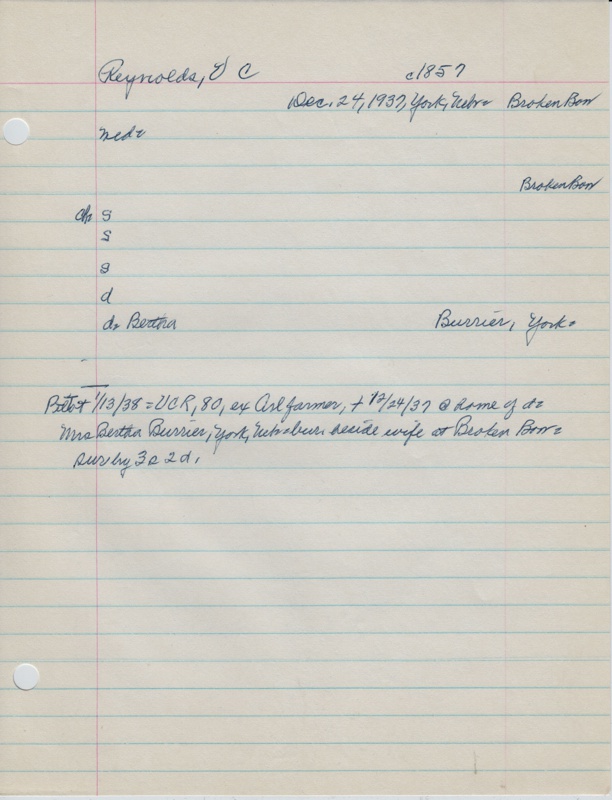 Reynolds, U C c1857
Dec. 24, 1937, York, Nebr Broken Bow
Broken Bow
ch s
s
s
d
d. Bertha Burrier, York.
1/13/38 = UCR, 80, ex farmer, + 12/24/37 @ home of d=
Mrs Bertha Burrier, York, Nebr= bur. beside wife at Broken Bow=
surv by 3s 2d.